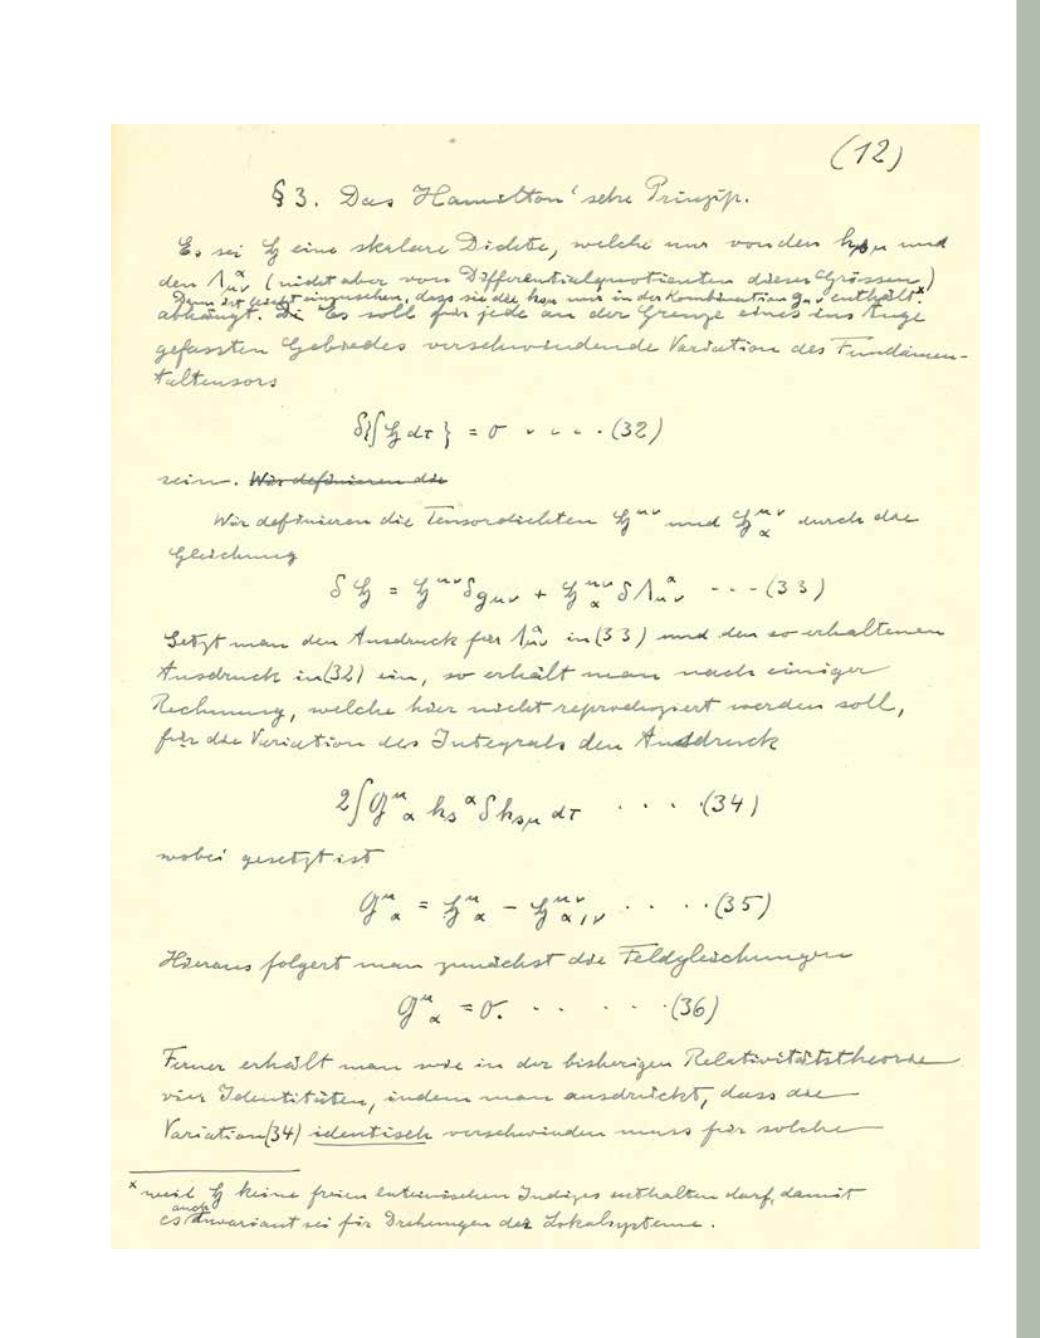 (12)
§ 3. Das Hamilton'sche Prinzip.
Es sei ℌ eine skalare Dichte, welche nur von den h_{sμ} und
den Λ^α_{μν} (nicht aber von Differentialquotienten dieser Grössen)
Dann ist leicht einzusehen, dass sie die h_{sμ} nur in der Kombination g_{μν} enthält.ˣ
abhängt. Es soll für jede an der Grenze eines ins Auge
gefassten Gebiedes verschwindende Variation des Fundamen-
taltensors
δ{∫ℌ dτ} = 0 . . . . (32)
sein. Wir definieren die
Wir definieren die Tensordichten ℌ^{μν} und ℌ_α^{μν} durch die
Gleichung
δℌ = ℌ^{μν} δg_{μν} + ℌ_α^{μν} δΛ^α_{μν} ---(33)
Setzt man den Ausdruck für Λ^α_{μν} in (33) und den so erhaltenen
Ausdruck in (32) ein, so erhält man nach einiger
Rechnung, welche hier nicht reproduziert werden soll,
für die Variation des Integrals den Ausdruck
2∫G^μ_α h_s^α δh_{sμ} dτ . . . . (34)
wobei gesetzt ist
G^μ_α = ℌ^μ_α - ℌ_α^{μν}_{/ν} . . . . (35)
Hieraus folgert man zunächst die Feldgleichungen
G^μ_α = 0. . . . . . (36)
Ferner erhält man wie in der bisherigen Relativitätstheorie
vier Identitäten, indem man ausdrückt, dass die
Variation (34) identisch verschwinden muss für solche
ˣ weil ℌ keine freien lateinischen Indizes enthalten darf, damit
es auch invariant sei für Drehungen der Lokalsysteme.